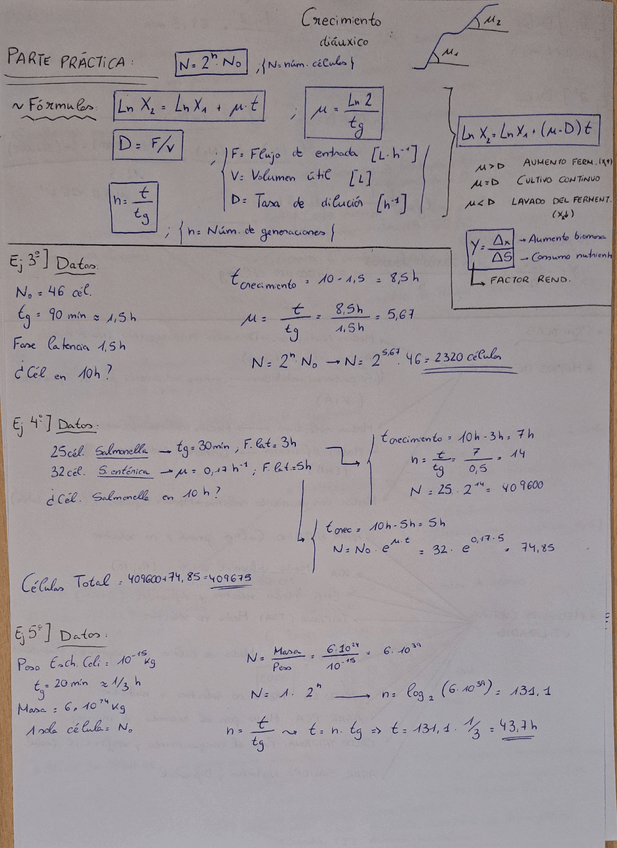 Crecimiento
diáuxico
μ₁
μ₂
PARTE PRÁCTICA:
N = 2ⁿ · N₀ , { N = núm. células }
~ Fórmulas
Ln X₂ = Ln X₁ + μ · t ; μ = Ln 2 / tg
D = F/V ; { F = Flujo de entrada [L·h⁻¹]
V = Volumen útil [L]
D = Tasa de dilución [h⁻¹] }
n = t / tg ; { n = Núm. de generaciones }
Ln X₂ = Ln X₁ + (μ - D) t
μ > D AUMENTO FERM.
μ = D CULTIVO CONTINUO
μ < D LAVADO DEL FERMENT.
(X↓)
Y = Δx → Aumento biomasa
ΔS → Consumo nutrient
FACTOR REND.
Ej 3º] Datos
N₀ = 46 cél.
tg = 90 min ≈ 1,5h
Fase latencia 1,5h
¿Cél en 10h?
t crecimiento = 10 - 1,5 = 8,5h
μ = t / tg = 8,5h / 1,5h = 5,67
N = 2ⁿ N₀ → N = 2^5,67 · 46 = 2320 células
Ej 4º] Datos
25 cél. Salmonella → tg = 30 min , F. lat = 3h
32 cél. S. entérica → μ = 0,17 h⁻¹ ; F. lat = 5h
¿Cél. Salmonella en 10h?
t crecimiento = 10h - 3h = 7h
n = t / tg = 7 / 0,5 = 14
N = 25 · 2¹⁴ = 409600
t crec = 10h - 5h = 5h
N = N₀ · e^μ·t = 32 · e^0,17·5 = 74,85
Células Total = 409600 + 74,85 = 409675
Ej 5º] Datos:
Peso Esch. Coli = 10⁻¹⁵ kg
tg = 20 min ≈ 1/3 h
Masa = 6·10²⁴ kg
1 sola célula = N₀
N = Masa / Peso = 6·10²⁴ / 10⁻¹⁵ = 6·10³⁹
N = 1 · 2ⁿ → n = log₂ (6·10³⁹) = 131,1
n = t / tg ⇝ t = n · tg ⇒ t = 131,1 · 1/3 = 43,7h